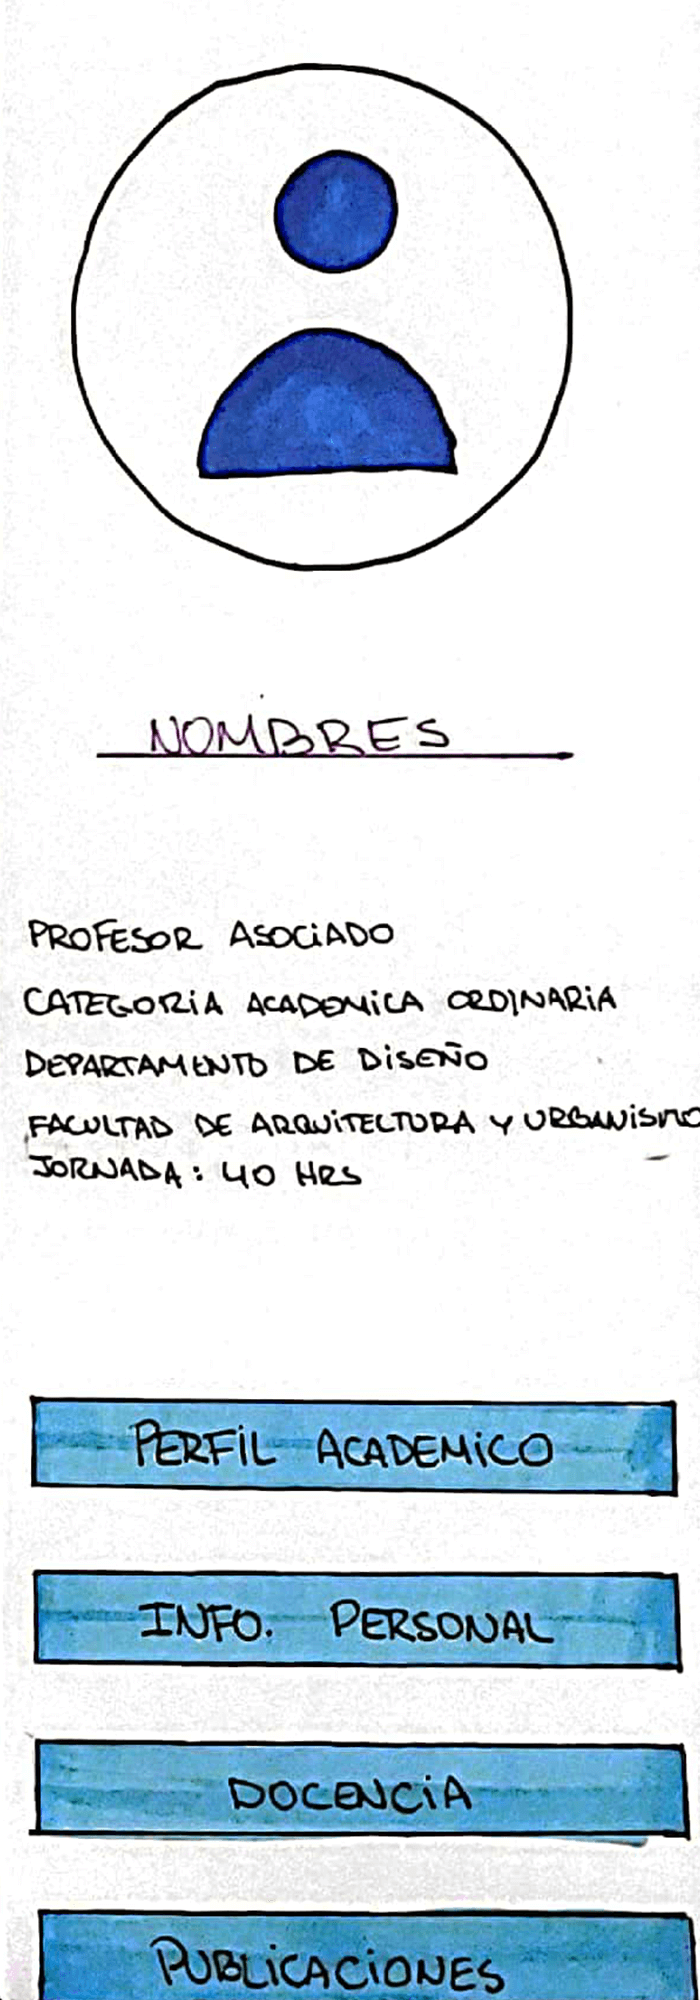 NOMBRES
PROFESOR ASOCIADO
CATEGORIA ACADEMICA ORDINARIA
DEPARTAMENTO DE DISEÑO
FACULTAD DE ARQUITECTURA Y URBANISMO
JORNADA: 40 HRS
PERFIL ACADEMICO
INFO. PERSONAL
DOCENCIA
PUBLICACIONES